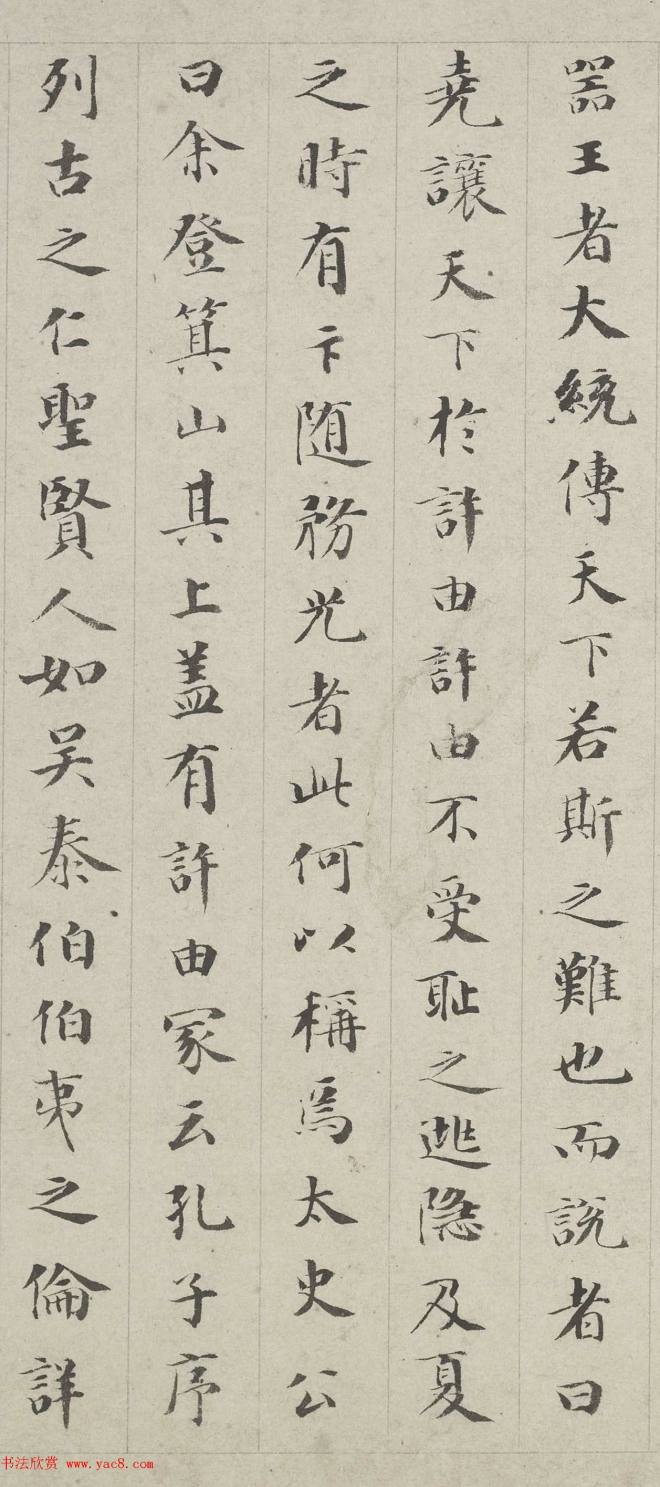 器王者大統傳天下若斯之難也而説者曰
堯讓天下於許由許由不受耻之逃隱及夏
之時有卞随務光者此何以稱焉太史公
曰余登箕山其上盖有許由冢云孔子序
列古之仁聖賢人如吴泰伯伯夷之倫詳
书法欣赏 www.yac8.com